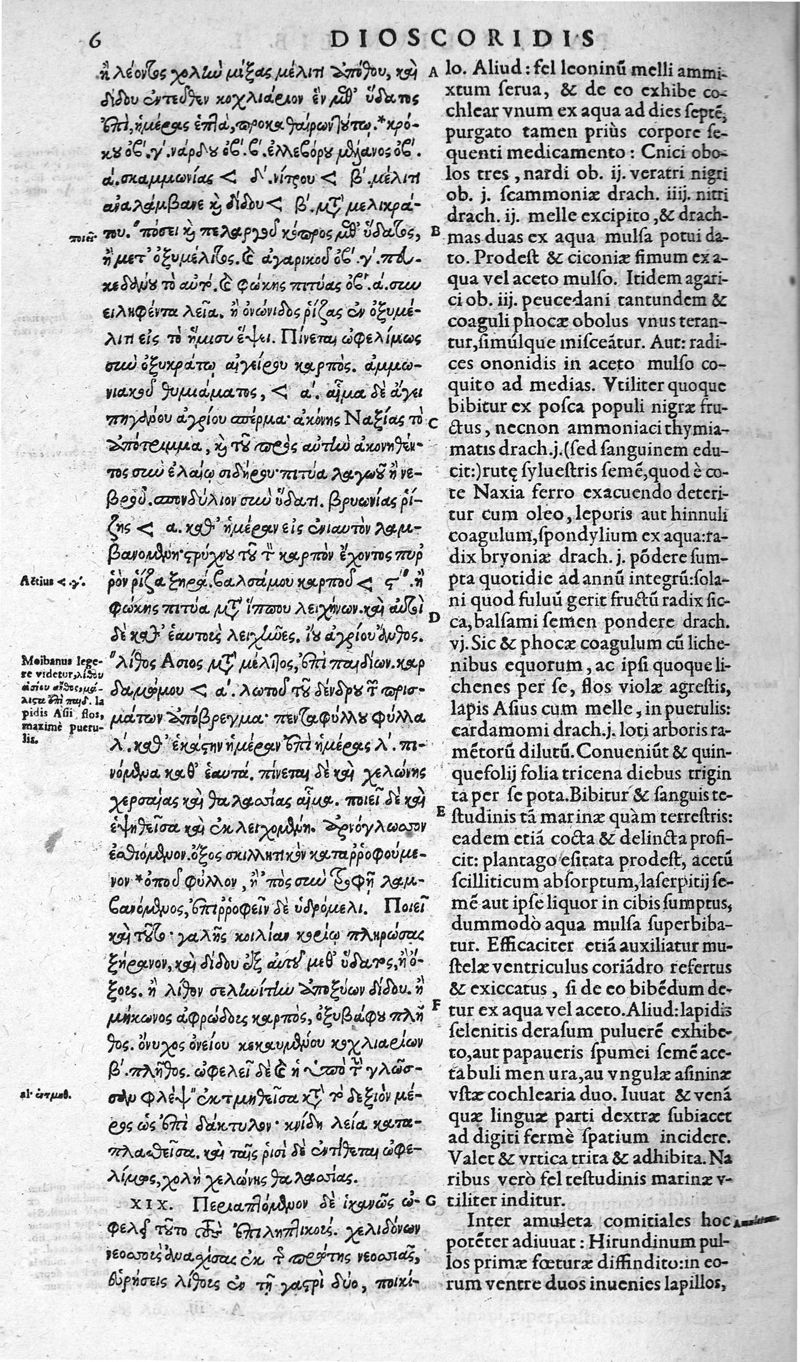 6 DIOSCORIDIS
ἢ λέοντος χολὴν μίξας μέλιτι ἀπόθου, καὶ
δίδου ἐντεῦθεν κοχλιάριον ἓν μεθ' ὕδατος
ἐπὶ ἡμέρας ἑπτὰ, προκαθαίρων οὕτω. *κρό-
κου ὀβ. γ΄. νάρδου ὀβ. β΄. ἐλλεβόρου μέλανος ὀβ.
ά. σκαμμωνίας < δ΄. νίτρου < β΄. μέλιτι
ἀναλάμβανε καὶ δίδου < β΄. μετὰ μελικρά-
του. "πόσει καὶ πελαργοῦ κόπρος μεθ' ὕδατος,
ἢ μετ' ὀξυμέλιτος. καὶ ἀγαρικοῦ ὀβ. γ΄. πευ-
κεδάνου τὸ αὐτό. καὶ φώκης πιτύας ὀβ. ά. σὺν
ειληφέντα λεῖα. ἢ ὀνώνιδος ῥίζας ἐν ὀξυμέ-
λιτι εἰς τὸ ἥμισυ ἕψει. Πίνεται ὠφελίμως
σὺν ὀξυκράτῳ αἰγείρου καρπός. ἀμμω-
νιακοῦ θυμιάματος, < ά. αἷμα δὲ ἄγει
πηγάνου ἀγρίου σπέρμα· ἀκόνης Ναξίας τὸ
ἀπότριμμα, καὶ τοῦ πρὸς αὐτὴν ἀκονηθέν-
τος σὺν ἐλαίῳ σιδήρου· πιτύα λαγωοῦ ἢ νε-
βροῦ. σπονδύλιον σὺν ὕδατι. βρυωνίας ῥί-
ζης < ά. καθ' ἡμέραν εἰς ἐνιαυτὸν λαμ-
βανομένη· στρύχνου τοῦ τὸν καρπὸν ἔχοντος πυρ
ρὸν ῥίζα ξηρά. βαλσάμου καρποῦ < ϛ΄. ἢ
φώκης πιτύα μετὰ ἵππου λειχήνων. καὶ αὐτοὶ
δὲ καθ' ἑαυτοὺς λειχῆνες. ἴου ἀγρίου ἄνθος.
"λίθος Ασιος μετὰ μέλιτος, ἐπὶ παιδίων. καρ
δαμώμου < ά. λωτοῦ τοῦ δένδρου τῶν πρισ-
μάτων ἀπόβρεγμα· πενταφύλλου φύλλα
λ΄. καθ' ἑκάστην ἡμέραν ἐπὶ ἡμέρας λ΄. πι-
νόμενα καθ' ἑαυτά. πίνεται δὲ καὶ χελώνης
χερσαίας καὶ θαλασσίας αἷμα. ποιεῖ δὲ καὶ
ἑψηθεῖσα καὶ ἐκλειχομένη. ἀρνόγλωσσον
ἐσθιόμενον. ὄξος σκιλλητικὸν καταῤῥοφούμε-
νον *ὀποῦ φύλλον, ἢ ὀπὸς σὺν τροφῇ λαμ-
βανόμενος, ἐπιῤῥοφεῖν δὲ ὑδρόμελι. Ποιεῖ
καὶ τοῦτο· γαλῆς κοιλίαν κορίῳ πληρώσας
ξήρανον, καὶ δίδου ἐξ αὐτοῦ μεθ' ὕδατος, ἢ ὄ-
ξους. ἢ λίθον σεληνίτην ἀποξύων δίδου. ἢ
μήκωνος ἀφρώδους καρπὸς, ὀξυβάφου πλῆ
θος. ὄνυχος ὀνείου κεκαυμένου κοχλιαρίων
β΄. πλῆθος. ὠφελεῖ δὲ καὶ ἡ ὑπὸ τὴν γλῶσ-
σαν φλὲψ "ἐκτμηθεῖσα κατὰ τὸ δεξιὸν μέ-
ρος ὡς ἐπὶ δάκτυλον· κνίδη λεία κατα-
πλασθεῖσα. καὶ ταῖς ῥισὶ δὲ ἐντίθεται ὠφε-
λίμως, χολὴ χελώνης θαλασσίας.
XIX. Περιαπτόμενον δὲ ἱκανῶς ὠ-
φελεῖ τοῦτο τοὺς ἐπιληπτικούς. χελιδόνων
νεοσσοὺς ἀνασχίσας ἐκ τῆς πρώτης νεοσσιᾶς,
εὑρήσεις λίθους ἐν τῇ γαστρὶ δύο, ποικί-
ποιεῖ
Aëtius < γ΄.
Moibanus lege-
re videtur, λίθου
ἀσίου ἄνθος, μά-
λιστα ἐπὶ παιδ. la
pidis Asii flos,
maximè pueru-
lis.
al. ἐντμηθ.
A
B
C
D
E
F
G
lo. Aliud: fel leoninũ melli ammi-
xtum serua, & de eo exhibe co-
chlear vnum ex aqua ad dies septẽ,
purgato tamen priùs corpore se-
quenti medicamento: Cnici obo-
los tres, nardi ob. ij. veratri nigri
ob. j. scammoniæ drach. iiij. nitri
drach. ij. melle excipito, & drach-
mas duas ex aqua mulsa potui da-
to. Prodest & ciconiæ fimum ex a-
qua vel aceto mulso. Itidem agari-
ci ob. iij. peucedani tantundem &
coaguli phocæ obolus vnus teran-
tur, simúlque misceãtur. Aut: radi-
ces ononidis in aceto mulso co-
quito ad medias. Vtiliter quoque
bibitur ex posca populi nigræ fru-
ctus, necnon ammoniaci thymia-
matis drach. j. (sed sanguinem edu-
cit:) rutę syluestris semẽ, quod è co-
te Naxia ferro exacuendo deteri-
tur cum oleo, leporis aut hinnuli
coagulum, spondylium ex aqua: ra-
dix bryoniæ drach. j. põdere sum-
pta quotidie ad annũ integrũ: sola-
ni quod fuluũ gerit fructũ radix sic-
ca, balsami semen pondere drach.
vj. Sic & phocæ coagulum cũ liche-
nibus equorum, ac ipsi quoque li-
chenes per se, flos violæ agrestis,
lapis Asius cum melle, in puerulis:
cardamomi drach. j. loti arboris ra-
mẽtorũ dilutũ. Conueniũt & quin-
quefolij folia tricena diebus trigin
ta per se pota. Bibitur & sanguis te-
studinis tã marinæ quàm terrestris:
eadem etiã cocta & delincta profi-
cit: plantago esitata prodest, acetũ
scilliticum absorptum, laserpitij se-
mẽ aut ipse liquor in cibis sumptus,
dummodò aqua mulsa superbiba-
tur. Efficaciter etiã auxiliatur mu-
stelæ ventriculus coriãdro refertus
& exiccatus, si de eo bibẽdum de-
tur ex aqua vel aceto. Aliud: lapidis
selenitis derasum puluerẽ exhibe-
to, aut papaueris spumei semẽ ace-
tabuli men ura, au vngulæ asininæ
vstæ cochlearia duo. Iuuat & venã
quæ linguæ parti dextræ subiacet
ad digiti fermè spatium incidere.
Valet & vrtica trita & adhibita. Na
ribus verò fel testudinis marinæ v-
tiliter inditur.
Inter amuleta comitiales hoc
potẽter adiuuat: Hirundinum pul-
los primæ fœturæ diffindito: in eo-
rum ventre duos inuenies lapillos,